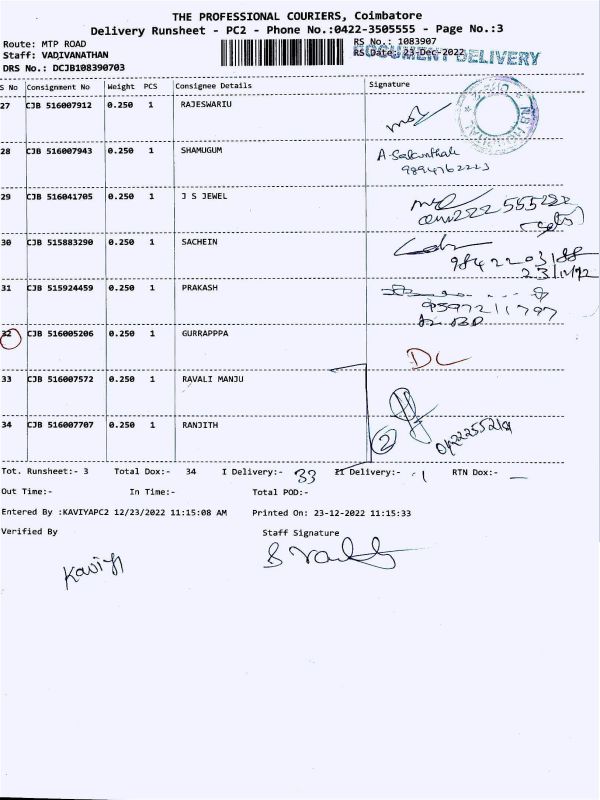 THE PROFESSIONAL COURIERS, Coimbatore
Delivery Runsheet - PC2 - Phone No.:0422-3505555 - Page No.:3
Route: MTP ROAD
RS No.: 1083907
Staff: VADIVANATHAN
RS Date: 23-Dec-2022
DOCUMENT DELIVERY
DRS No.: DCJB108390703
S No Consignment No Weight PCS Consignee Details Signature
27 CJB 516007912 0.250 1 RAJESWARIU
28 CJB 516007943 0.250 1 SHAMUGUM
9894762223
29 CJB 516041705 0.250 1 J S JEWEL
30 CJB 515883290 0.250 1 SACHEIN
9842203188
23/12/22
31 CJB 515924459 0.250 1 PRAKASH
9597211797
32 CJB 516005206 0.250 1 GURRAPPPA DL
33 CJB 516007572 0.250 1 RAVALI MANJU
34 CJB 516007707 0.250 1 RANJITH
2
Tot. Runsheet:- 3 Total Dox:- 34 I Delivery:- 33 II Delivery:- 1 RTN Dox:- —
Out Time:- In Time:- Total POD:-
Entered By :KAVIYAPC2 12/23/2022 11:15:08 AM Printed On: 23-12-2022 11:15:33
Verified By Staff Signature